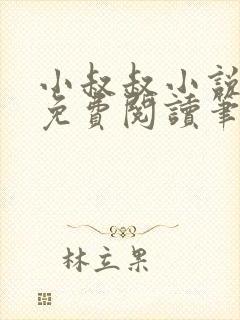 小叔叔小說
免費閱讀筆
林立果